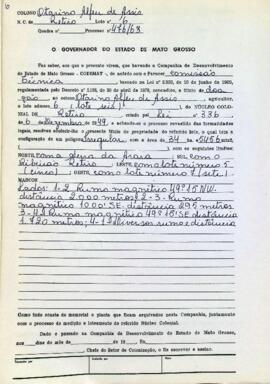 COLONO Otarino Alfeu de Assis
N. C. de Retiro Lote n.º 6
Quadra n.º Processo n.º 486/68
O GOVERNADOR DO ESTADO DE MATO GROSSO
Faz saber, aos que o presente virem, que havendo a Companhia de Desenvolvimento
do Estado de Mato Grosso - CODEMAT -, de acôrdo com o Parecer comissão
técnica baseando na Lei nº de de junho de 1965,
regulamentada pelo Decreto nº 1.138, de 20 de abril de 1970, procedeu, a título de doa
ção ao Otarino Alfeu de Assis, agricultor,
o lote nº 6 (lote seis) do NÚCLEO COLO-
NIAL DE Retiro criado pela lei nº 336
de 6 de Dezembro de 1949, e tendo o mesmo cumprido as formalidades
legais, resolveu expedir-lhe o presente título de propriedade do referido lote, o qual tem a
configuração de um polígono irregular com a área de 34 ha.
com os seguintes limites:
NORTE
Ribeirão Retiro com o lote número 5
(cinco) com o lote número 7 (sete)
MARCOS
Lados: 1-2 Rumo magnético 49º15'NW-
distância 2.000 metros; 2-3-Rumo
magnético distância 295 metros
3-4 Rumo magnético 49º15'SE distância
1.720 metros; 4-1 diversos rumos e distância
Como tudo consta do memorial e planta que ficam arquivados nesta Companhia, juntamente
com o processo de medição e loteamento do referido Núcleo Colonial.
Dado e passado na Companhia de Desenvolvimento do Estado de Mato Grosso, aos
dias do mês de de 19 Eu,
Chefe do Setor de Colonização, o fiz escrever e assino.